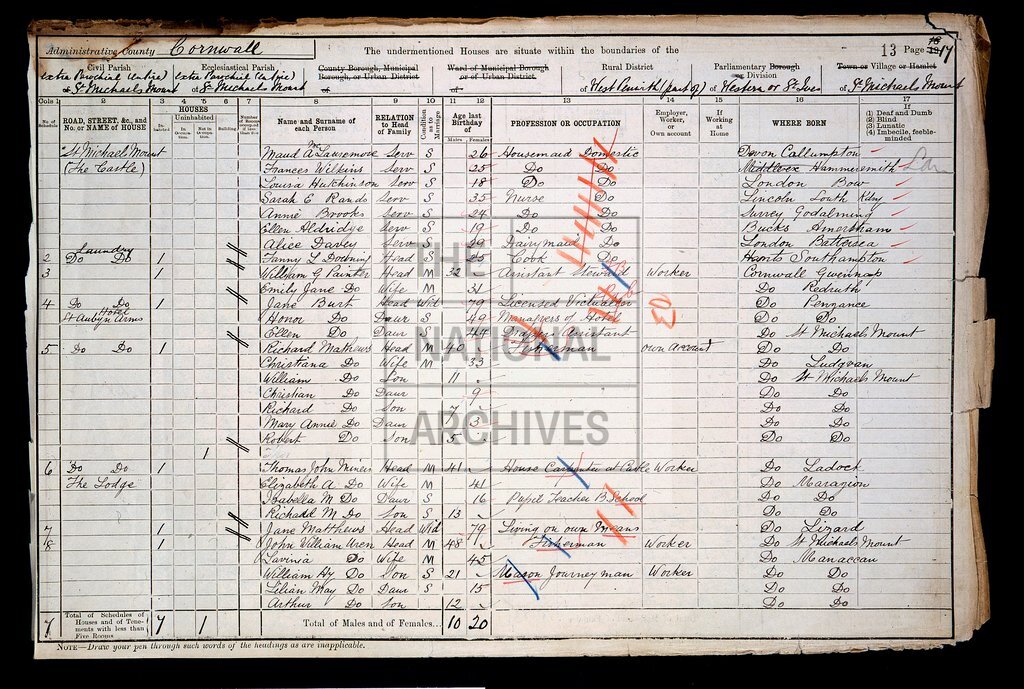 Administrative County Cornwall
The undermentioned Houses are situate within the boundaries of the
13 Page 17
Civil Parish
Ecclesiastical Parish
County Borough, Municipal Borough, or Urban District
Ward of Municipal Borough or of Urban District
Rural District
Parliamentary Borough or Division
Town or Village or Hamlet
of St Michaels Mount
of St Michaels Mount
of
of
of West Penwith (part of)
of Western or St Ives
of St Michaels Mount
Cols 1 2 3 4 5 6 7 8 9 10 11 12 13 14 15 16 17
No. of Schedule
ROAD, STREET, &c., and No. or NAME of HOUSE
HOUSES
Inhabited
Uninhabited
In Occupn.
Not in Occupn.
Building
Name and Surname of each Person
RELATION to Head of Family
Condition as to Marriage
Age last Birthday of
Males Females
PROFESSION OR OCCUPATION
Employer, Worker, or Own account
If Working at Home
WHERE BORN
If
(1) Deaf and Dumb
(2) Blind
(3) Lunatic
(4) Imbecile, feeble-minded
St Michaels Mount Maud A Lawremore Serv S 26 Housemaid Domestic Devon Callumpton
(The Castle) Frances Wilkins Serv S 25 Do Do Middlesex Hammersmith
Louisa Hutchinson Serv S 18 Do Do London Bow
Sarah E Rands Serv S 35 Nurse Do Lincoln South
Annie Brooks Serv S 24 Do Do Surrey Godalming
Ellen Aldridge Serv S 19 Do Do Bucks Amersham
Alice Davey Serv S 29 Dairymaid Do London Battersea
Laundry
2 Do Do 1 Fanny L Head S 25 Cook Do Hants Southampton
3 1 William G Painter Head M 32 Assistant Steward Worker Cornwall Gwennap
Emily Jane Do Wife M 31 Do Redruth
4 Do Do 1 Jane Burt Head Wid 79 Licensed Victualler Do Penzance
St Aubyn Arms Hotel Honor Do Daur S 49 Manageress of Hotel Do Do
Ellen Do Daur S 44 Assistant Do St Michaels Mount
5 Do Do 1 Richard Mathews Head M 40 Fisherman own account Do Do
Christiana Do Wife M 33 Do Ludgvan
William Do Son 11 Do St Michaels Mount
Christian Do Daur 9 Do Do
Richard Do Son 7 Do Do
Mary Annie Do Daur Do Do
Robert Do Son 5 Do Do
1
6 Do Do 1 Thomas John Miners Head M 41 House Carpenter at Castle Worker Do Ladock
The Lodge Elizabeth A Do Wife M 41 Do Marazion
Isabella M Do Daur S 16 Pupil Teacher B School Do Do
Richard M Do Son S 13 Do Do
7 1 Jane Matthews Head Wid 79 Living on own Means Do Lizard
8 1 John William Uren Head M 48 Fisherman Worker Do St Michaels Mount
Lavinia Do Wife M 45 Do Manaccan
William Hy Do Son S 21 Mason Journeyman Worker Do Do
Lilian May Do Daur S 15 Do Do
Arthur Do Son 12 Do Do
7 Total of Schedules of Houses and of Tenements with less than Five Rooms 7 1 Total of Males and of Females... 10 20
NOTE—Draw your pen through such words of the headings as are inapplicable.
THE
NATIONAL
ARCHIVES